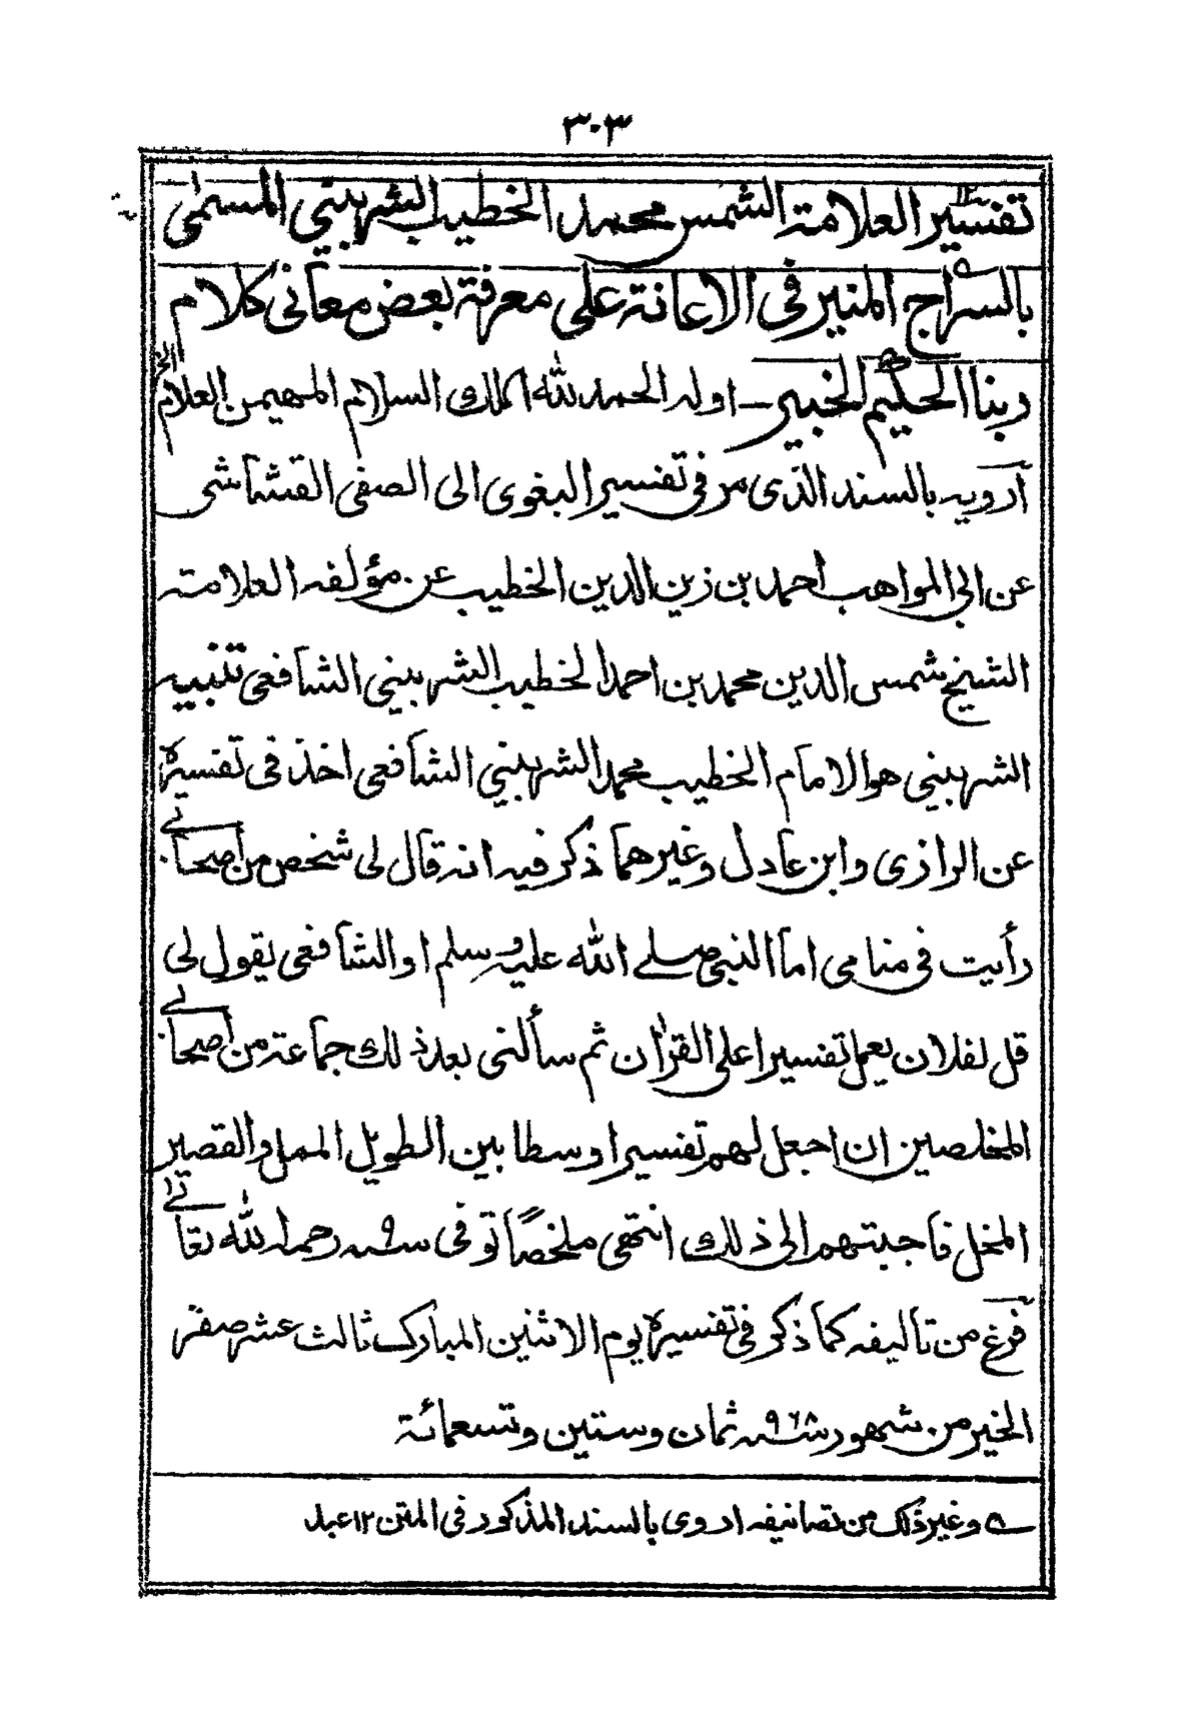 ٣٠٣
تفسير العلامة الشمس محمد الخطيب الشربيني المسمى
بالسراج المنير في الاعانة على معرفة بعض معاني كلام
ربنا الحكيم الخبير ــ اوله الحمد لله الملك السلام المهيمن العلام الخ
أرويه بالسند الذي مر في تفسير البغوي الى الصفي القشاشي
عن ابي المواهب احمد بن زين الدين الخطيب عن مؤلفه العلامة
الشيخ شمس الدين محمد بن احمد الخطيب الشربيني الشافعي تنبيه
الشربيني هو الامام الخطيب محمد الشربيني الشافعي اخذ في تفسيره
عن الرازي وابن عادل وغيرهما ذكر فيه انه قال لي شخص من أصحابي
رأيت في منامي اما النبي صلى الله عليه وسلم او الشافعي يقول لي
قل لفلان يعمل تفسيرا على القرآن ثم سألني بعد ذلك جماعة من أصحابي
المخلصين ان اجعل لهم تفسيرا وسطا بين الطويل الممل والقصير
المخل فأجبتهم الى ذلك انتهى ملخصاً توفي سنه رحمه الله تعالى
فرغ من تأليفه كما ذكر في تفسيره يوم الاثنين المبارك ثالث عشر صفر
الخير من شهور سنه ٩٦٨ ثمان وستين وتسعمائة
وغير ذلك من تصانيفه اروي بالسند المذكور في المتن ١٢ عبد